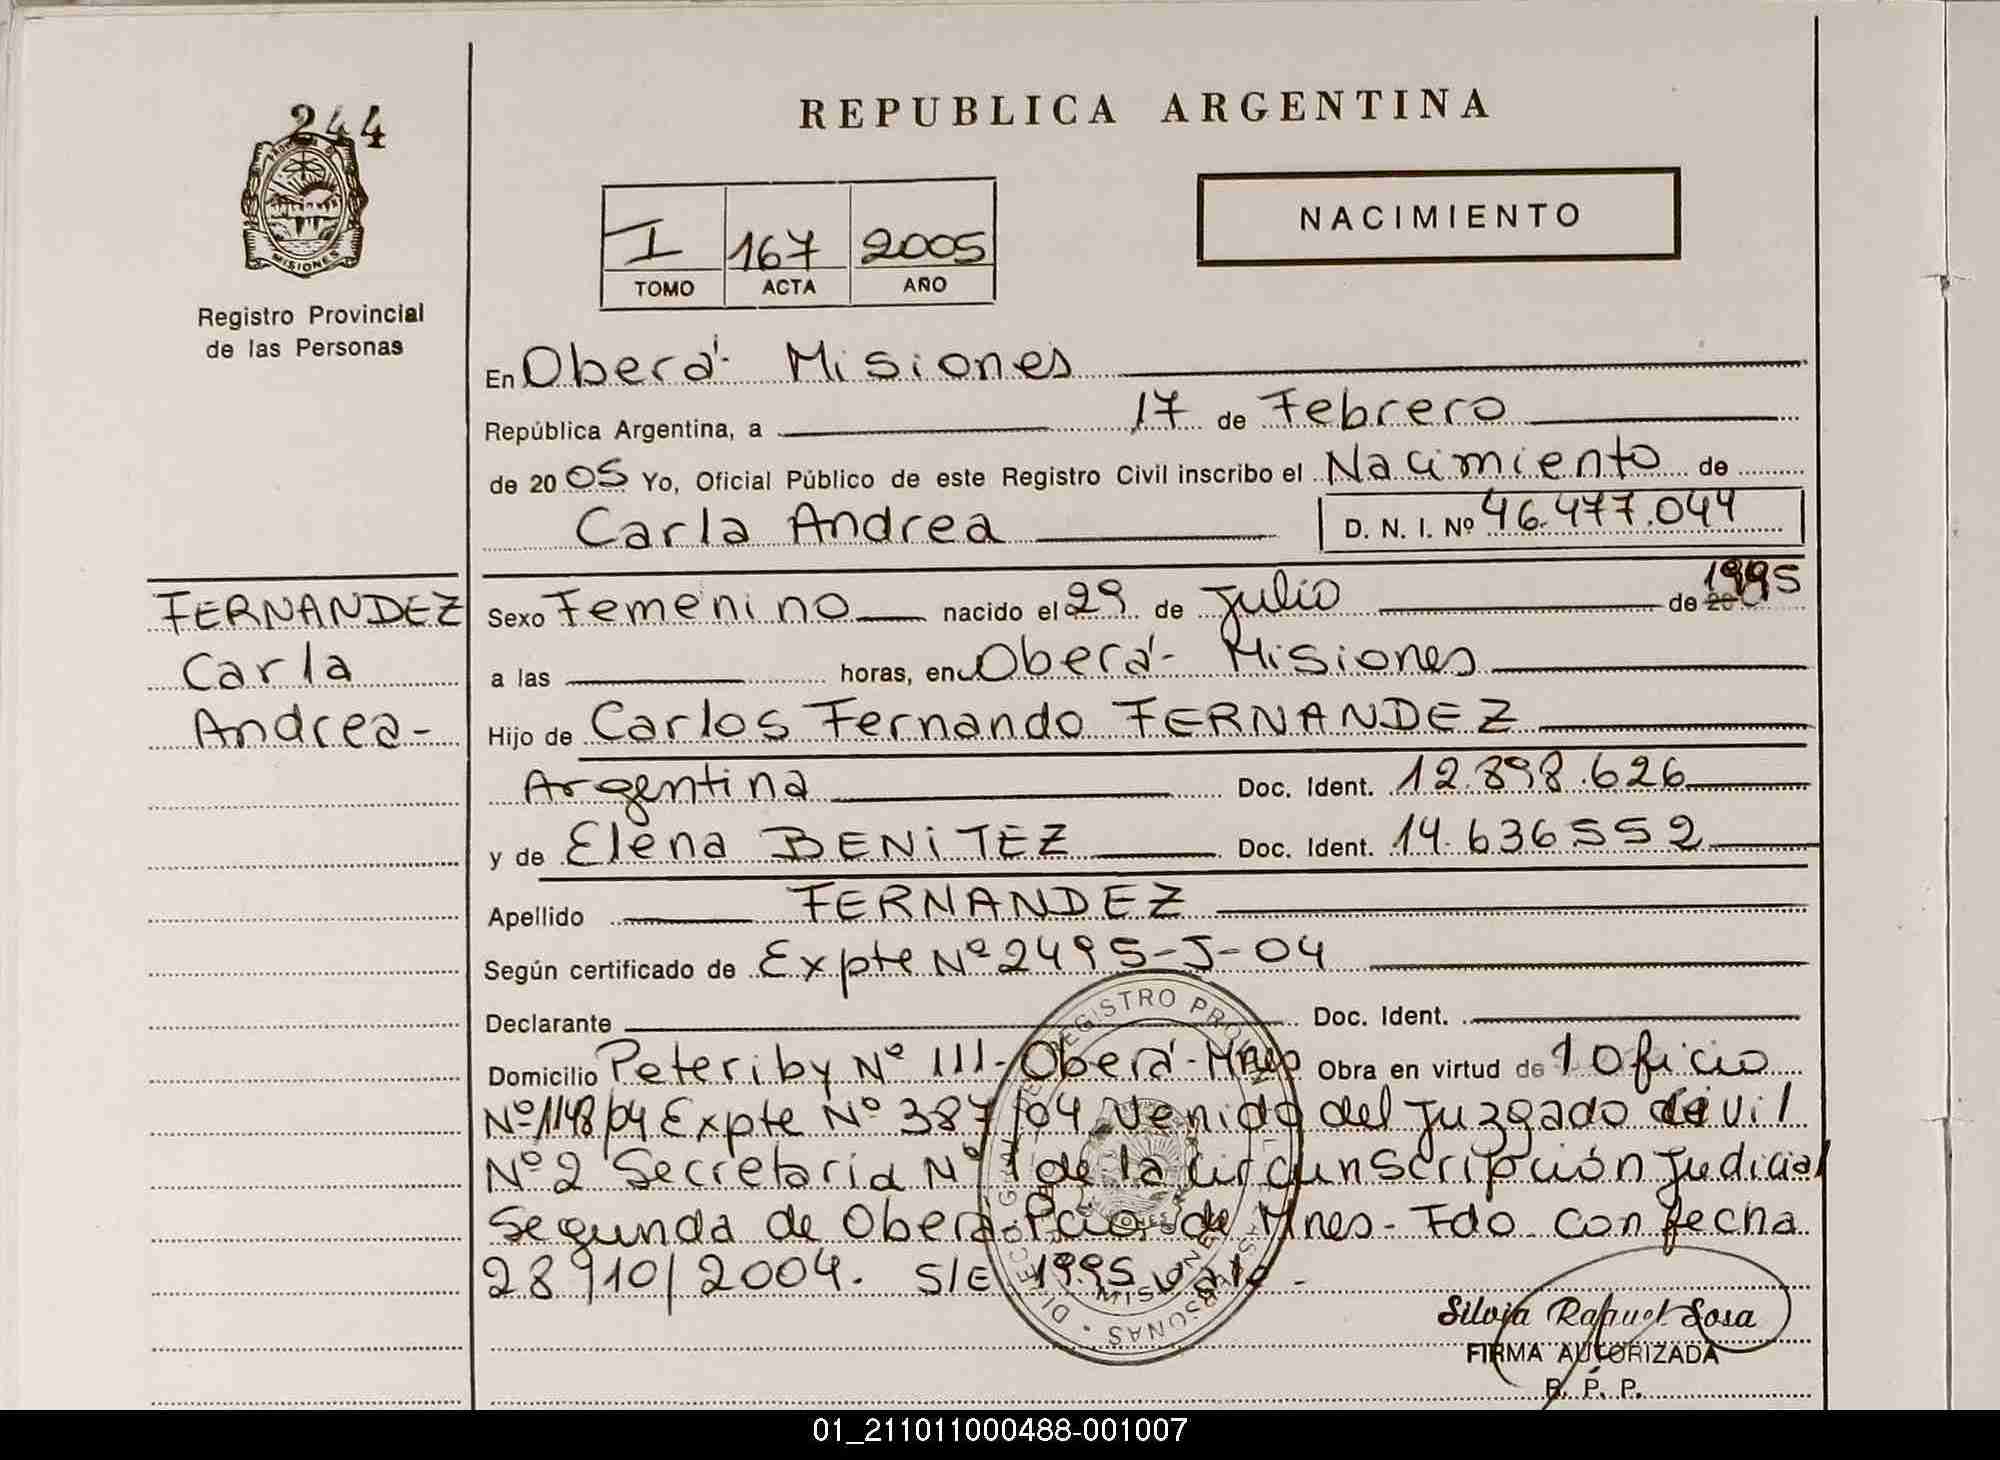 244
MISIONES
Registro Provincial
de las Personas
REPUBLICA ARGENTINA
I 167 2005
TOMO ACTA AÑO
NACIMIENTO
En Oberá - Misiones
República Argentina, a 17 de Febrero
de 2005 Yo, Oficial Público de este Registro Civil inscribo el Nacimiento de
Carla Andrea D. N. I. Nº 46.477.044
FERNANDEZ
Carla
Andrea-
Sexo Femenino nacido el 29 de Julio de 1995
a las horas, en Oberá - Misiones
Hijo de Carlos Fernando FERNANDEZ
Argentina Doc. Ident. 12.898.626
y de Elena BENITEZ Doc. Ident. 14.636552
Apellido FERNANDEZ
Según certificado de Expte Nº 2495-J-04
Declarante Doc. Ident.
Domicilio Peteriby Nº 111-Oberá-Mnes Obra en virtud de 1 Oficio
Nº1148/04 Expte Nº 387/04 venido del Juzgado Civil
Nº2 Secretaria Nº 1 de la Circunscripción Judicial
Segunda de Oberá-Pcia de Mnes- Fdo con fecha
28/10/2004. S/E 1995 vale-
Silvia Raquel Sosa
FIRMA AUTORIZADA
R. P. P.
01_211011000488-001007